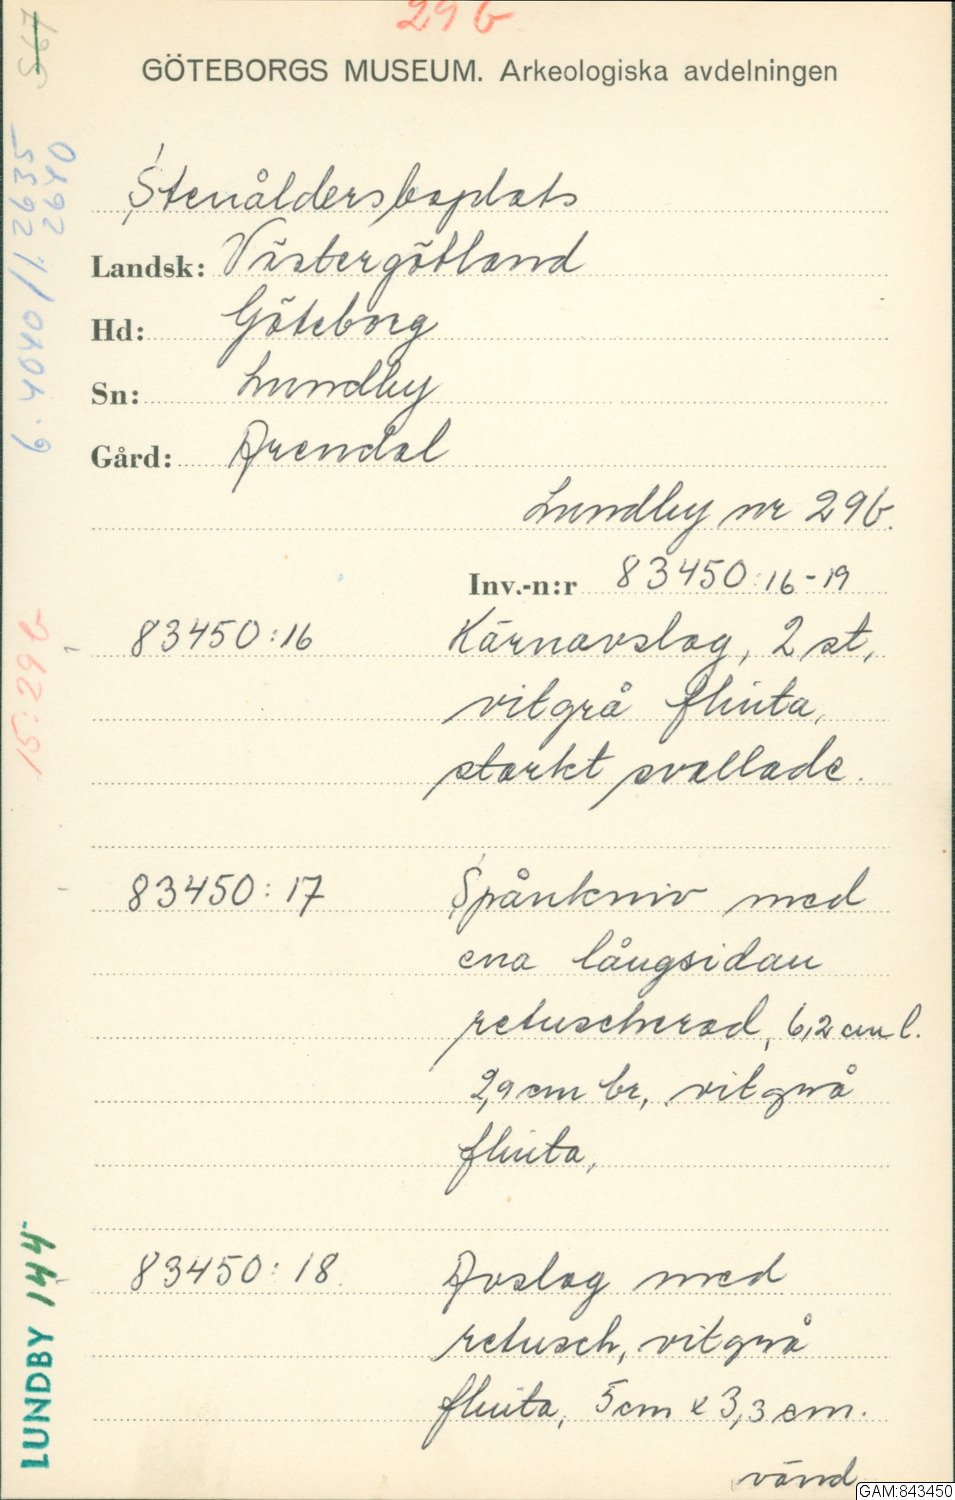 29 b
567
GÖTEBORGS MUSEUM. Arkeologiska avdelningen
Stenåldersboplats
Landsk: Västergötland
Hd: Göteborg
Sn: Lundby
Gård: Arendal
Lundby nr 29b.
Inv.-n:r 83450:16-19
83450:16 Kärnavslag, 2 st,
vitgrå flinta,
starkt svallade.
83450:17 Spånkniv med
ena långsidan
retuscherad, 6,2 cm l.
2,9 cm br, vitgrå
flinta,
83450:18 Avslag med
retusch, vitgrå
flinta, 5 cm x 3,3 cm.
vänd
6.4040/1.2635
2640
15:29 b
LUNDBY 144
GAM:843450